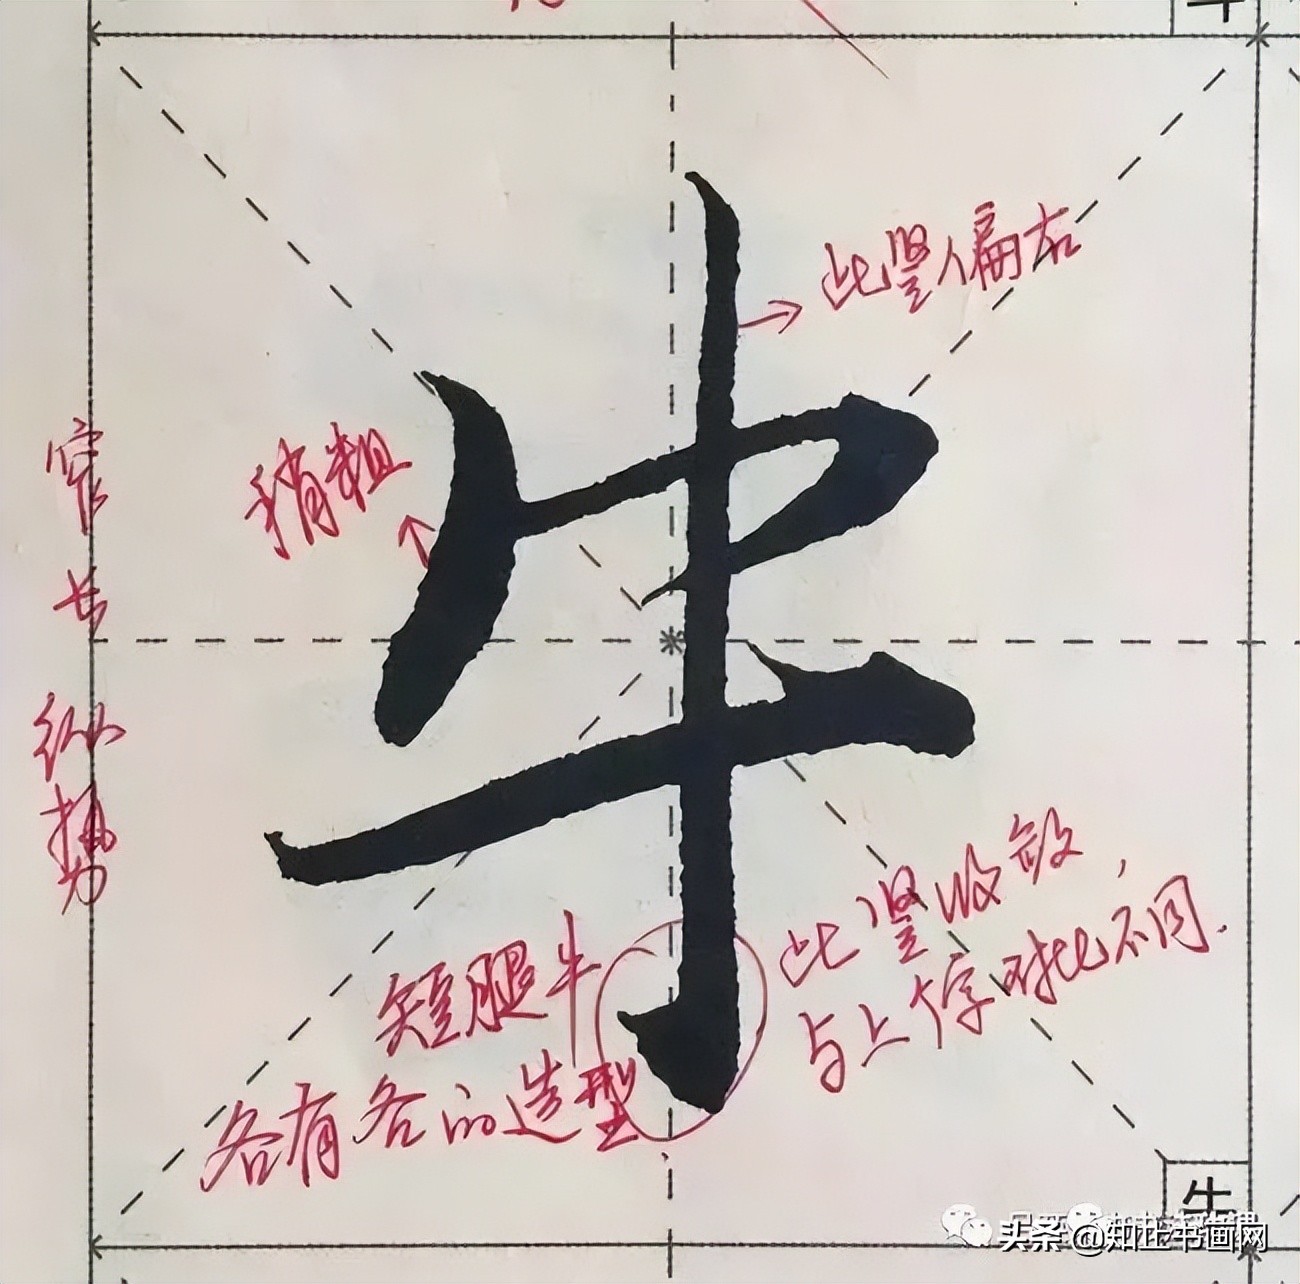 牛
此竖偏右
稍粗
窄长纵势
此竖收敛,
与上个字对比不同.
短腿牛
各有各的造型
牛
头条 @知止书画网